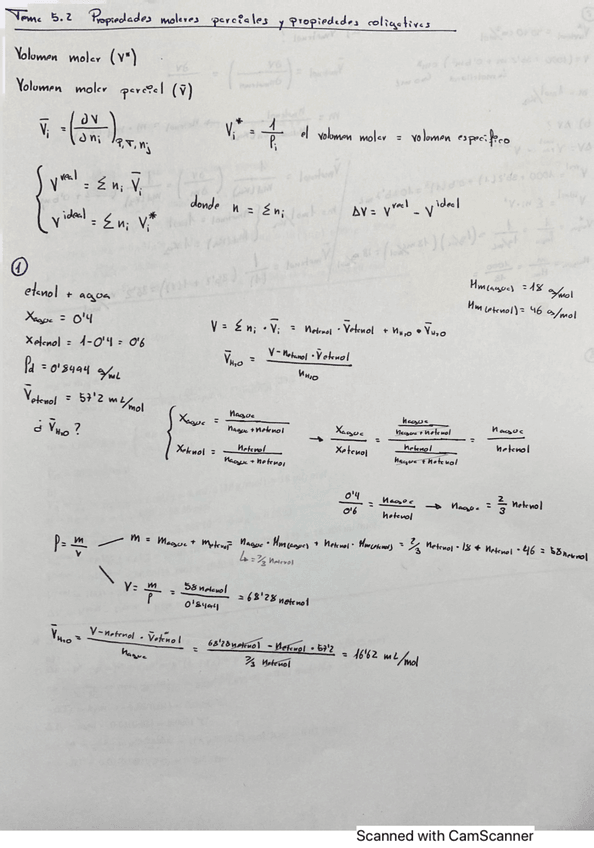 Tema 5.2 Propiedades molares parciales y propiedades coligativas
Volumen molar (V*)
Volumen molar parcial (V̄)
V̄i = (∂V/∂ni)P,T,nj    Vi* = 1/ρi el volumen molar = volumen específico
{ V^real = Σ ni V̄i
V^ideal = Σ ni Vi*    donde n = Σ ni    ΔV = V^real - V^ideal
①
etanol + agua    Mm(agua) = 18 g/mol
Xagua = 0'4    Mm(etanol) = 46 g/mol
Xetanol = 1-0'4 = 0'6    V = Σ ni · V̄i = netanol · V̄etanol + nH2O · V̄H2O
ρd = 0'8494 g/mL    V̄H2O = (V - netanol · V̄etanol)/nH2O
V̄etanol = 57'2 mL/mol
¿ V̄H2O ?    { Xagua = nagua/(nagua + netanol)
Xetanol = netanol/(nagua + netanol) → Xagua/Xetanol = (nagua/(nagua + netanol))/(netanol/(nagua + netanol)) = nagua/netanol
0'4/0'6 = nagua/netanol → nagua = 2/3 netanol
ρ = m/V — m = magua + metanol = nagua · Mm(agua) + netanol · Mm(etanol) = 2/3 netanol · 18 + netanol · 46 = 58 netanol
↳ = 2/3 netanol
V = m/ρ = 58 netanol/0'8494 = 68'28 netanol
V̄H2O = (V - netanol · V̄etanol)/nagua = (68'28 netanol - netanol · 57'2)/(2/3 netanol) = 16'62 mL/mol
Scanned with CamScanner